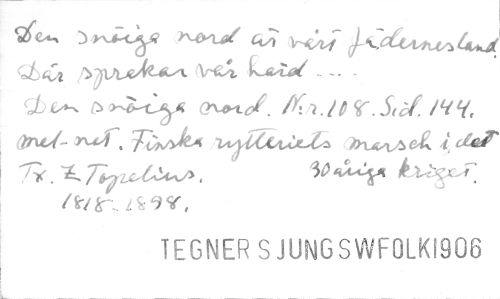 Den snöiga nord är vårt fädernesland.
Där sprakar vår härd ....
Den snöiga nord. N:r.108. Sid. 144.
mel-not. Finska rytteriets marsch i det
Tx. Z Topelius. 30åriga kriget.
1818-1898.
TEGNER SJUNGSWFOLK1906